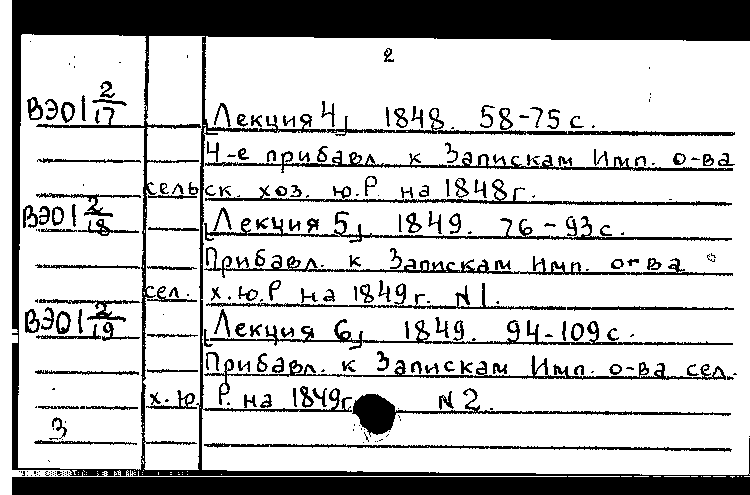 2
ВЭО | 2/17 [Лекция 4] 1848. 58-75 с.
4-е прибавл. к Запискам Имп. о-ва
сельск. хоз. ю.Р. на 1848 г.
ВЭО | 2/18 [Лекция 5] 1849. 76-93 с.
Прибавл. к Запискам Имп. о-ва
сел. х.ю.Р на 1849 г. N 1.
ВЭО | 2/19 [Лекция 6] 1849. 94-109 с.
Прибавл. к Запискам Имп. о-ва сел.
х. ю. Р. на 1849 г. N 2.
3